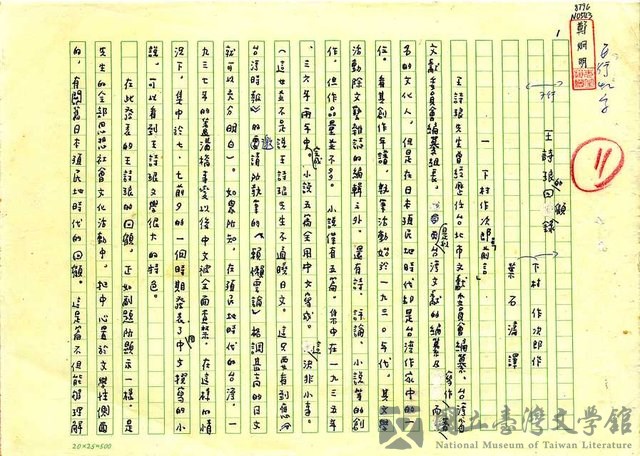 8796
N0543
鄭烱明
百行41字
1
11
7行
王詩琅的回顧錄
下村作次郎作
葉石濤譯
一 下村作次郎前言
王詩琅先生曾經歷任台北市文獻委員會編纂，台灣省
文獻委員會編纂組長，是和台灣文獻的編纂及寫作有
名的文化人，但是在日本殖民地時代卻是台灣作家中的
位。看其創作年譜，執筆活動始於一九三〇年代，其文學
活動除文藝雜誌的編輯之外，還有詩、評論、小說等的創
作。但作品量並不多。小說僅有五篇，集中在一九三五年
、三六年兩年中。小說五篇全用中文寫成。這決非小事。
（這並不是說王詩琅先生不通曉日文。這只要看到應分
台灣時報》的邀請所執筆的〈賴懶雲論〉格調甚高的日文
就可以充分明白）。如眾所知，在殖民地時代的台灣，一
九三七年的蘆溝橋事變以後中文被全面查禁，在這種情
況下，集中於七、七前夕的一個時期發表了中文撰寫的小
說，可以看到王詩琅文學很大的特色。
在此發表的王詩琅的回顧，正如副題所顯示一樣，是
先生的全部思想社會文化活動中，把中心置於文學性側面
的，有關舊日本殖民地時代的回顧。這是篇不但能夠理解
20×25=500
國立臺灣文學館
National Museum of Taiwan Literature